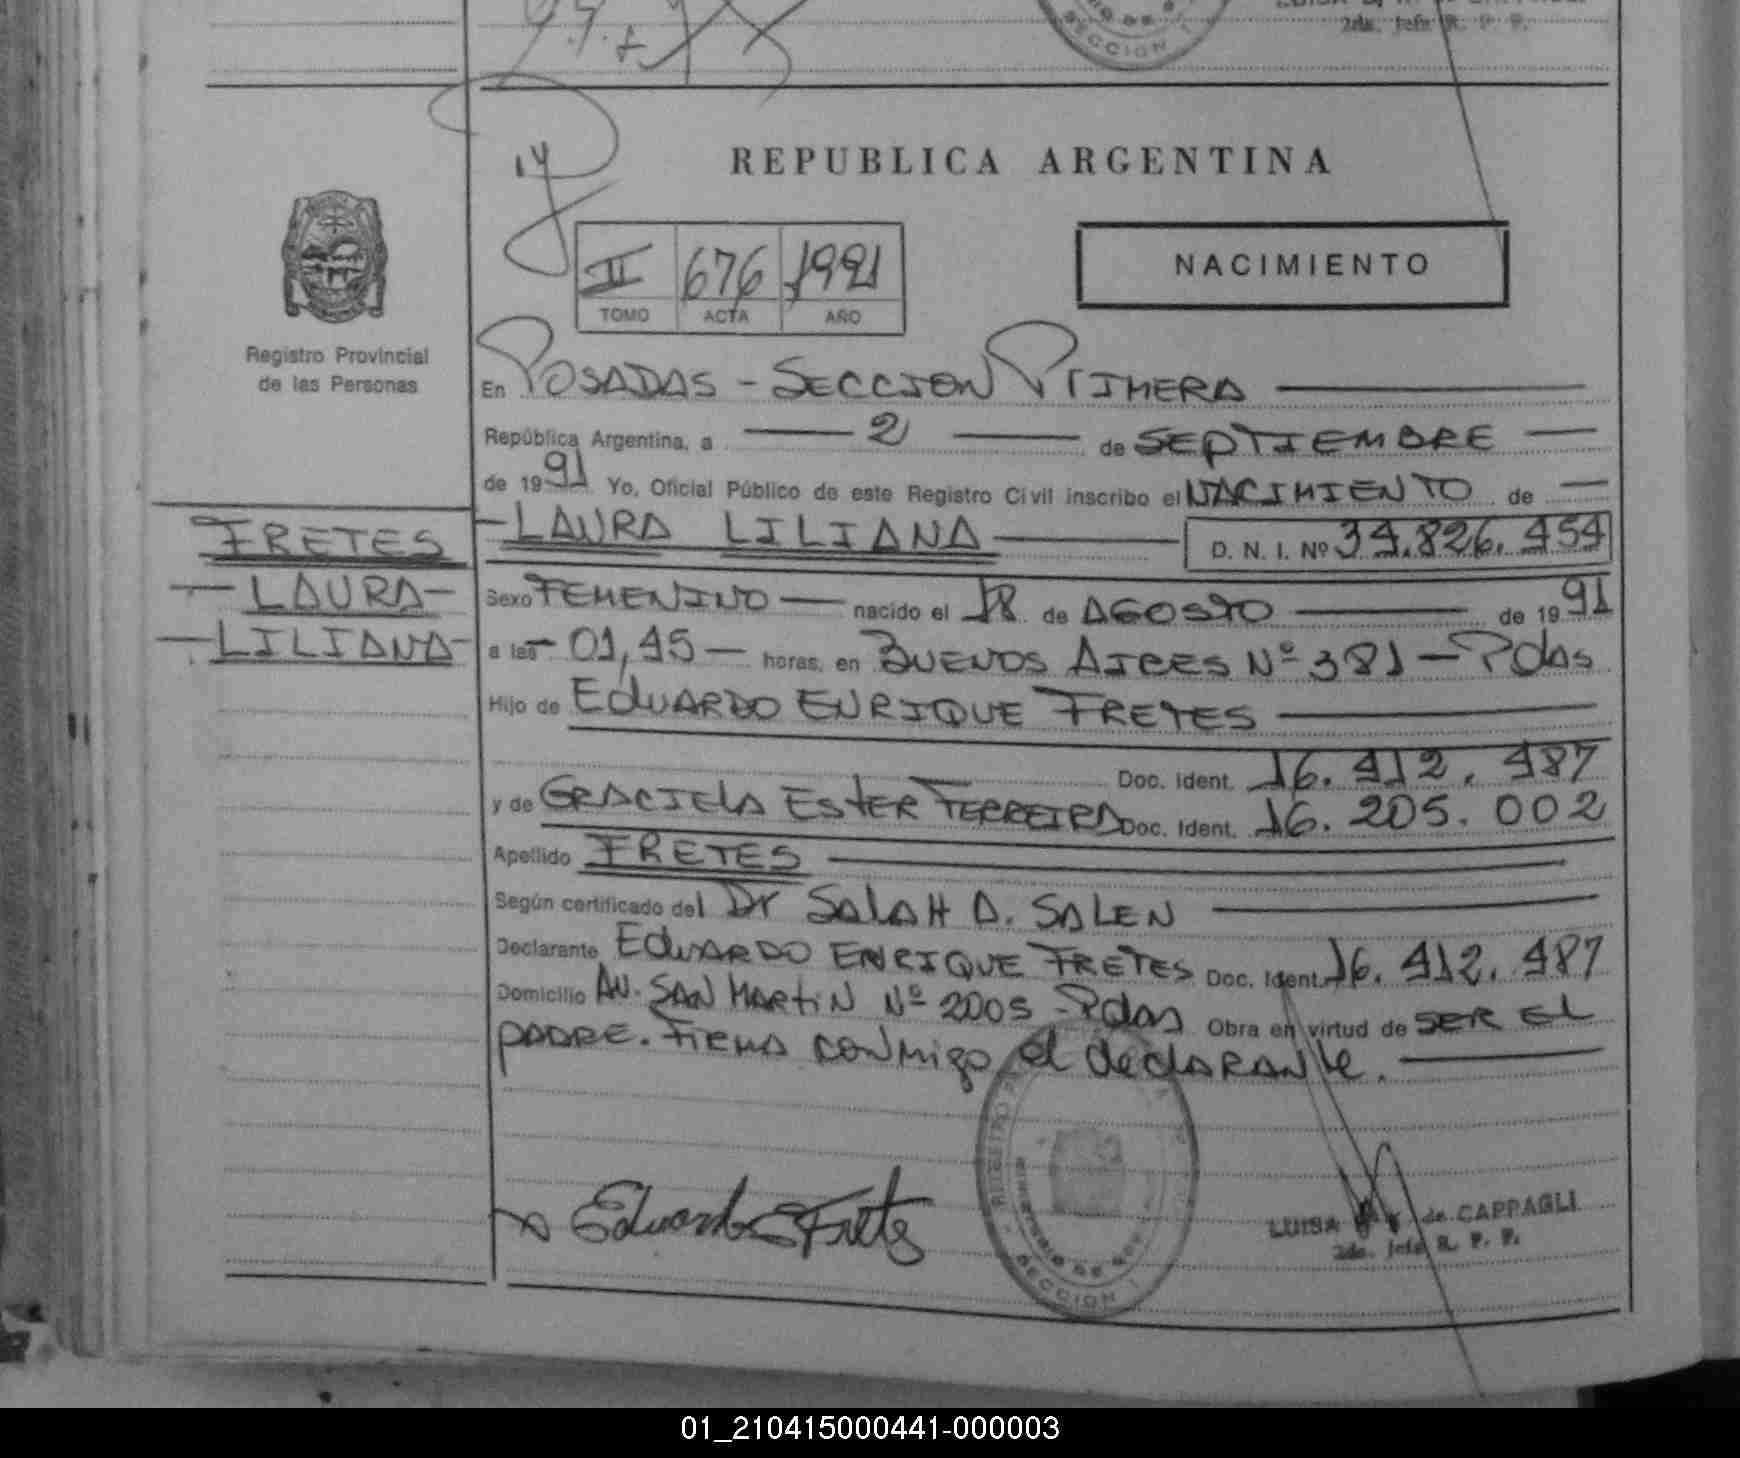 2da. Jefe R. P. P.
SECCION 1
REPUBLICA ARGENTINA
NACIMIENTO
II 676 1991
TOMO ACTA AÑO
Registro Provincial
de las Personas
En POSADAS - SECCION PRIMERA
República Argentina, a 2 de SEPTIEMBRE
de 1991 Yo, Oficial Público de este Registro Civil inscribo el NACIMIENTO de
LAURA LILIANA D. N. I. Nº 34.826.454
FRETES
LAURA
LILIANA
Sexo FEMENINO nacido el 18 de AGOSTO de 1991
a las 01,45 horas, en BUENOS AIRES Nº 381 - Pdas
Hijo de EDUARDO ENRIQUE FRETES
Doc. Ident. 16.412.487
y de GRACIELA ESTER FERREIRA Doc. Ident. 16.205.002
Apellido FRETES
Según certificado del Dr SALAH A. SALEN
Declarante EDUARDO ENRIQUE FRETES Doc. Ident. 16.412.487
Domicilio AV. SAN MARTIN Nº 2005 - Pdas Obra en virtud de SER EL
PADRE. FIRMA CONMIGO el declARANte.
Eduardo E Fretes
SECCION 1
LUISA de CAPPAGLI
2da. Jefe R. P. P.
01_210415000441-000003